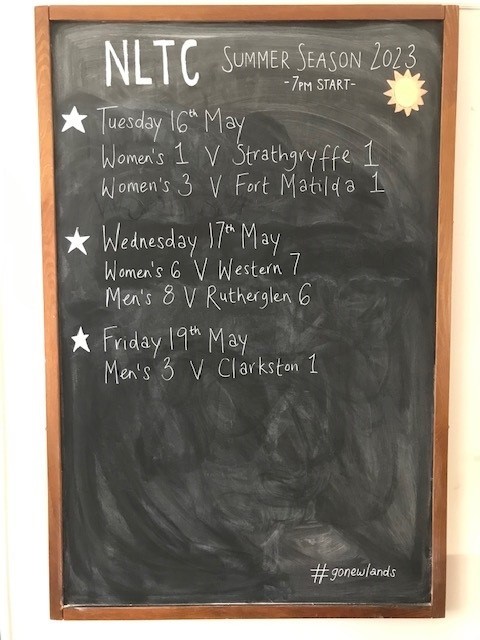 NLTC SUMMER SEASON 2023
-7PM START-
Tuesday 16th May
Women's 1 V Strathgryffe 1
Women's 3 V Fort Matilda 1
Wednesday 17th May
Women's 6 V Western 7
Men's 8 V Rutherglen 6
Friday 19th May
Men's 3 V Clarkston 1
#gonewlands